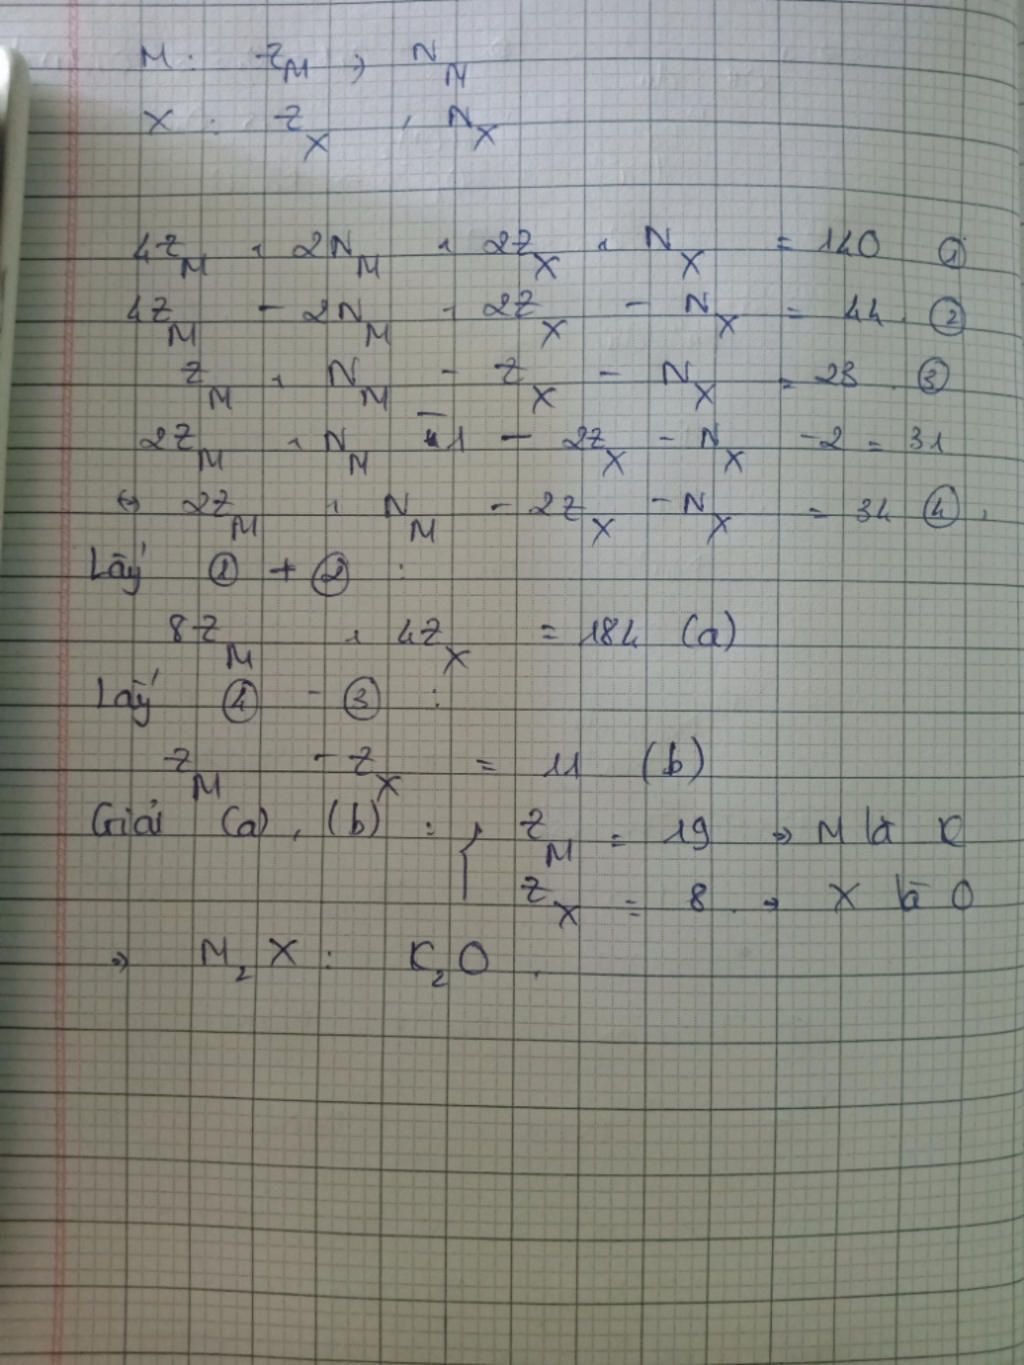 M : Z_M , N_M
X : Z_X , N_X
4Z_M + 2N_M + 2Z_X + N_X = 140 ①
4Z_M - 2N_M + 2Z_X - N_X = 44 . ②
Z_M + N_M - Z_X - N_X = 23 . ③
2Z_M + N_M - 1 - 2Z_X - N_X - 2 = 31
⇔ 2Z_M + N_M - 2Z_X - N_X = 34 ④ .
Lấy ① + ② :
8Z_M + 4Z_X = 184 (a)
Lấy ④ - ③ :
Z_M - Z_X = 11 (b)
Giải (a) , (b) : { Z_M = 19 → M là K
Z_X = 8 . → X là O
→ M₂X : K₂O .